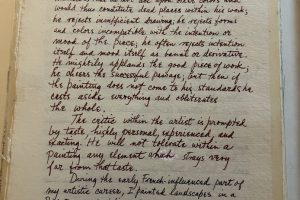 would thus constitute dead places within his work;
he rejects insufficient drawing; he rejects forms
and colors incompatible with the intention or
mood of the piece; he often rejects intention
itself and mood itself as banal or derivative.
He mightily applauds the good piece of work;
he cheers the successful passage; but then if
the painting does not come to his standards he
casts aside everything and obliterates
the whole.
The critic within the artist is prompted
by taste, highly personal, experienced, and
exacting. He will not tolerate within a
painting any element which strays very
far from that taste.
During the early French-influenced part of
my artistic career, I painted landscapes in a